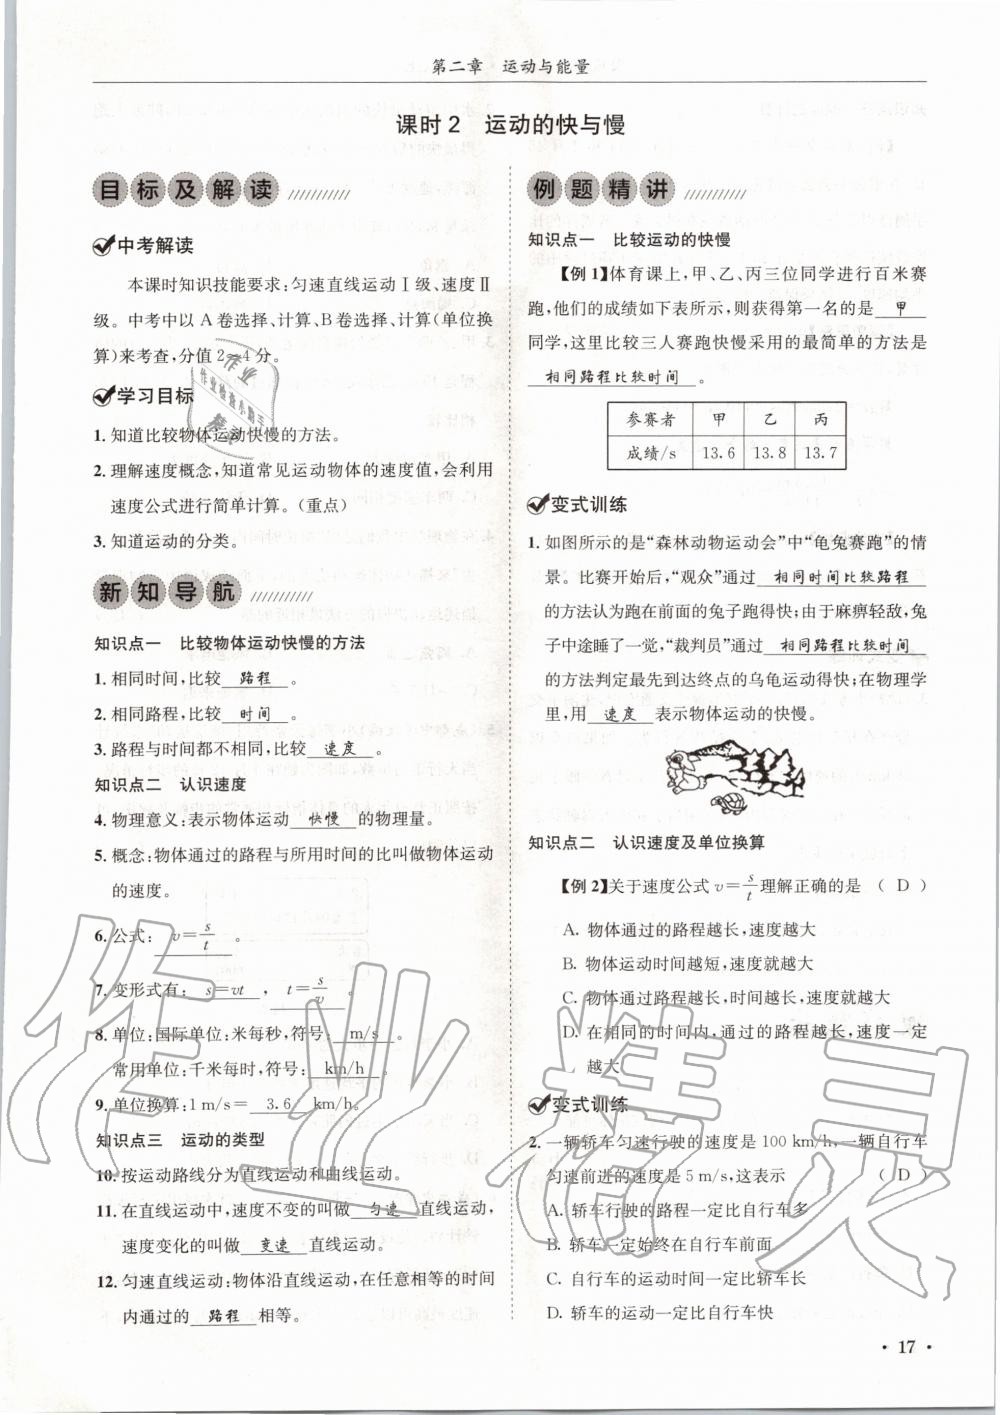 第二章 运动与能量
课时2 运动的快与慢
目标及解读
中考解读
本课时知识技能要求:匀速直线运动Ⅰ级、速度Ⅱ
级。中考中以A卷选择、计算、B卷选择、计算(单位换
算)来考查,分值2~4分。
学习目标
1. 知道比较物体运动快慢的方法。
2. 理解速度概念,知道常见运动物体的速度值,会利用
速度公式进行简单计算。(重点)
3. 知道运动的分类。
新知导航
知识点一 比较物体运动快慢的方法
1. 相同时间,比较 路程 。
2. 相同路程,比较 时间 。
3. 路程与时间都不相同,比较 速度 。
知识点二 认识速度
4. 物理意义:表示物体运动 快慢 的物理量。
5. 概念:物体通过的路程与所用时间的比叫做物体运动
的速度。
6. 公式: v=s/t 。
7. 变形式有: s=vt , t=s/v 。
8. 单位:国际单位:米每秒,符号: m/s 。
常用单位:千米每时,符号: km/h 。
9. 单位换算:1 m/s= 3.6 km/h。
知识点三 运动的类型
10. 按运动路线分为直线运动和曲线运动。
11. 在直线运动中,速度不变的叫做 匀速 直线运动,
速度变化的叫做 变速 直线运动。
12. 匀速直线运动:物体沿直线运动,在任意相等的时间
内通过的 路程 相等。
例题精讲
知识点一 比较运动的快慢
【例1】体育课上,甲、乙、丙三位同学进行百米赛
跑,他们的成绩如下表所示,则获得第一名的是 甲
同学,这里比较三人赛跑快慢采用的最简单的方法是
相同路程比较时间 。
参赛者 甲 乙 丙
成绩/s 13.6 13.8 13.7
变式训练
1. 如图所示的是“森林动物运动会”中“龟兔赛跑”的情
景。比赛开始后,“观众”通过 相同时间比较路程
的方法认为跑在前面的兔子跑得快;由于麻痹轻敌,兔
子中途睡了一觉,“裁判员”通过 相同路程比较时间
的方法判定最先到达终点的乌龟运动得快;在物理学
里,用 速度 表示物体运动的快慢。
知识点二 认识速度及单位换算
【例2】关于速度公式 v=s/t 理解正确的是 ( D )
A. 物体通过的路程越长,速度越大
B. 物体运动时间越短,速度就越大
C. 物体通过路程越长,时间越长,速度越大
D. 在相同的时间内,通过的路程越长,速度一定
越大
变式训练
2. 一辆轿车匀速行驶的速度是100 km/h,一辆自行车
匀速前进的速度是5 m/s,这表示 ( D )
A. 轿车行驶的路程一定比自行车多
B. 轿车一定始终在自行车前面
C. 自行车的运动时间一定比轿车长
D. 轿车的运动一定比自行车快
· 17 ·
作业精灵
作业
作业检查小助手